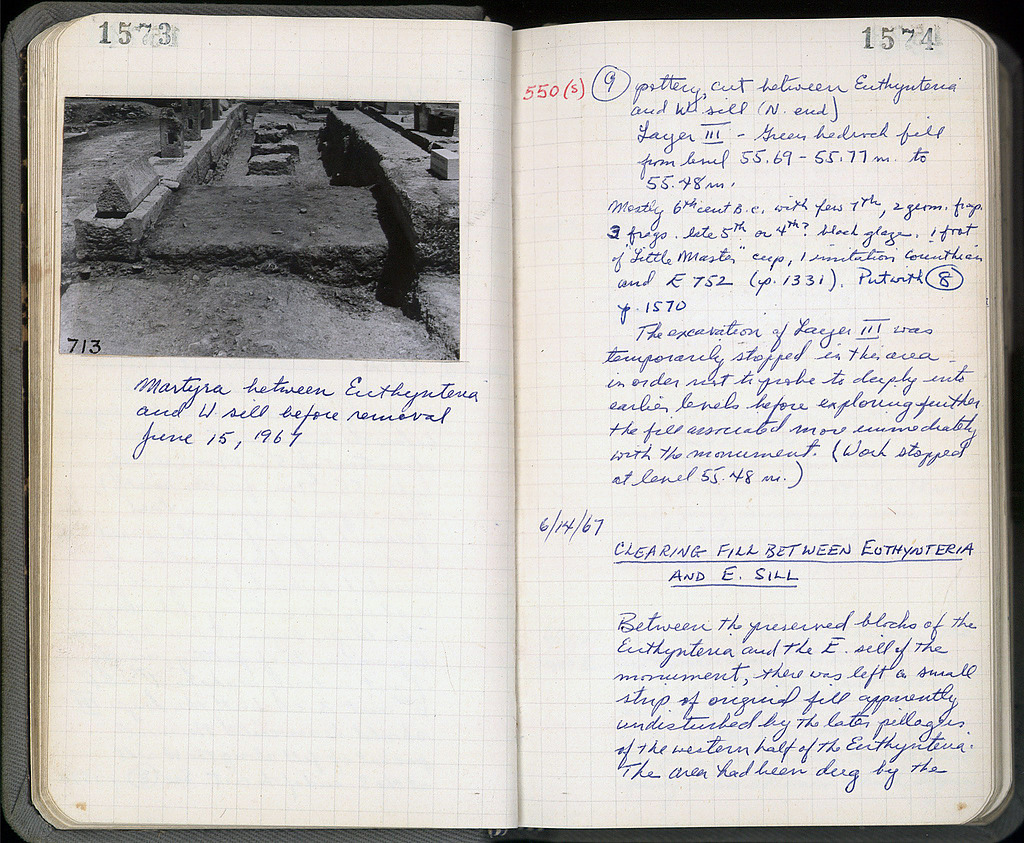 1573
713
Martyra between Euthynteria
and W. sill before removal
June 15, 1967
1574
550(s) 9 pottery, cut between Euthynteria
and W. sill (N. end)
Layer III - Green bedrock fill
from level 55.69 - 55.77 m. to
55.48 m.
Mostly 6th cent B.C. with few 7th, 2 geom. frags.
3 frags. late 5th or 4th? black glaze. 1 foot
of "Little Master" cup, 1 imitation Corinthian
and E 752 (p. 1331). Put with 8
p. 1570
The excavation of Layer III was
temporarily stopped in this area
in order not to probe to deeply into
earlier levels before exploring further
the fill associated more immediately
with the monument. (Work stopped
at level 55.48 m.)
6/14/67
CLEARING FILL BETWEEN EUTHYNTERIA
AND E. SILL
Between the preserved blocks of the
Euthynteria and the E. sill of the
monument, there was left a small
strip of original fill apparently
undisturbed by the later pillagers
of the western half of the Euthynteria.
The area had been dug by the